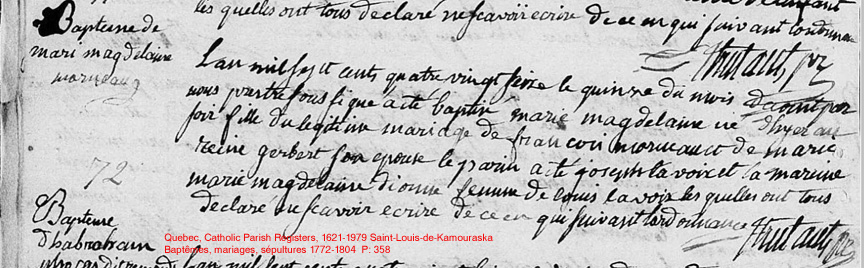 les quelles ont tous declaré ne scavoir ecrire de ce en qui suivant lordonnance
Trutaut ptr
Bapteme de
mari magdelaine
morneau
Lan mil sept cents quatre vingt seize le quinze du mois daoust par
nous prestre sous signe a eté baptisé marie magdelaine né dhyer au
soir fille du legitime mariage de francois morneau et de marie
reine gerbert son epouse le parin a eté joseph lavoix et la marinne
marie magdelaine dionne femme de louis lavoix les quelles ont tous
declaré ne scavoir ecrire de ce en qui suivant lordonnance
Trutaut ptr
72
Bapteme
Dhabraham
Lan mil sept cents quatre vingt
Quebec, Catholic Parish Registers, 1621-1979 Saint-Louis-de-Kamouraska
Baptêmes, mariages, sépultures 1772-1804 P: 358